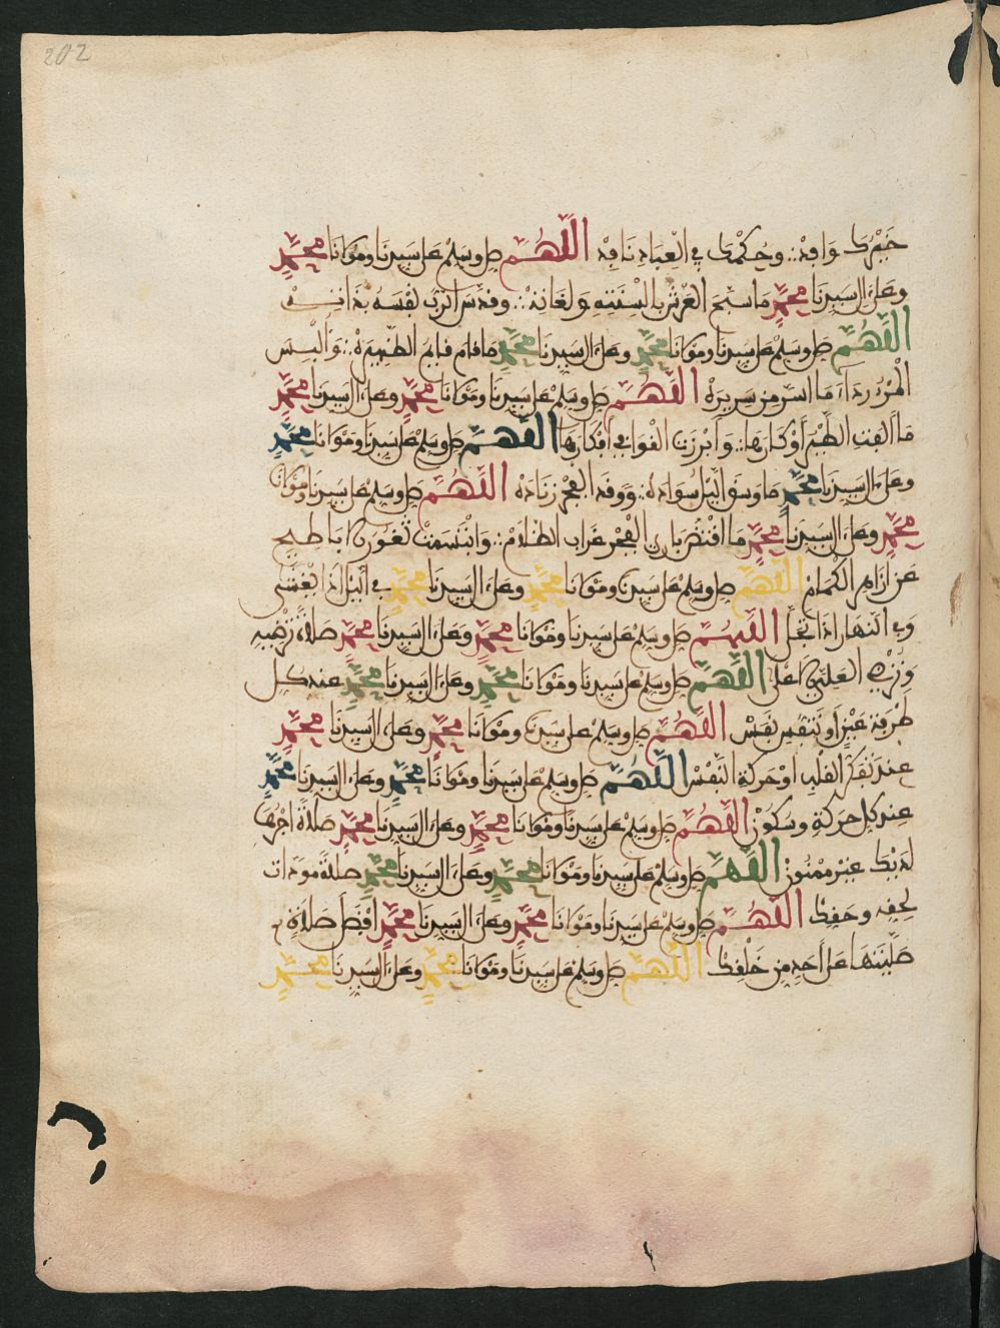 202
خيرك وافد ∴ وحكمك في العباد نافذ اللهم صل وسلم على سيدنا ومولانا محمد
وعلى ال سيدنا محمد ما سبح العرش بالسنته ولغاته ∴ وقدس الرب نفسه بذاته
اللهم صل وسلم على سيدنا ومولانا محمد وعلى ال سيدنا محمد ما قام قايم الظهيرة ∴ وألبس
المرء رداء ما اسر من سريرة اللهم صل وسلم على سيدنا ومولانا محمد وعلى ال سيدنا محمد
ما ألفت الطير أوكارها ∴ وابرزت القوافي أفكارها اللهم صل وسلم على سيدنا ومولانا محمد
وعلى ال سيدنا محمد ما وسق اليل سواده ∴ ووقد الفجر زناده اللهم صل وسلم على سيدنا ومولانا
محمد وعلى ال سيدنا محمد ما اقتنص باز الفجر غراب الظلام ∴ وابتسمت ثغور
عن ازاهر الكمام اللهم صل وسلم على سيدنا ومولانا محمد وعلى ال سيدنا محمد في اليل اذا يغشى
وفي النهار اذا تجلى اللهم صل وسلم على سيدنا ومولانا محمد وعلى ال سيدنا محمد صلاة ترضيه
اللهم صل وسلم على سيدنا ومولانا محمد وعلى ال سيدنا محمد عند كل
طرفة عين او تنفس نفس اللهم صل وسلم على سيدنا ومولانا محمد وعلى ال سيدنا محمد
عند تفكر القلب او حركة النفس اللهم صل وسلم على سيدنا ومولانا محمد وعلى ال سيدنا محمد
عند كل حركة وسكون اللهم صل وسلم على سيدنا ومولانا محمد وعلى ال سيدنا محمد صلاة اجرها
لديك غير ممنون اللهم صل وسلم على سيدنا ومولانا محمد وعلى ال سيدنا محمد صلاة مودات
لحقه وحقك اللهم صل وسلم على سيدنا ومولانا محمد وعلى ال سيدنا محمد افضل صلاة
صليتها على أحد من خلقك اللهم صل وسلم على سيدنا ومولانا محمد وعلى ال سيدنا محمد